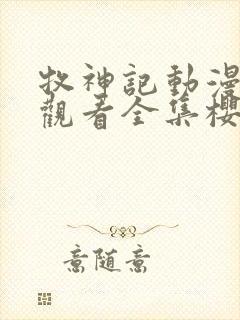 牧神記動漫
觀看全集櫻
意随意